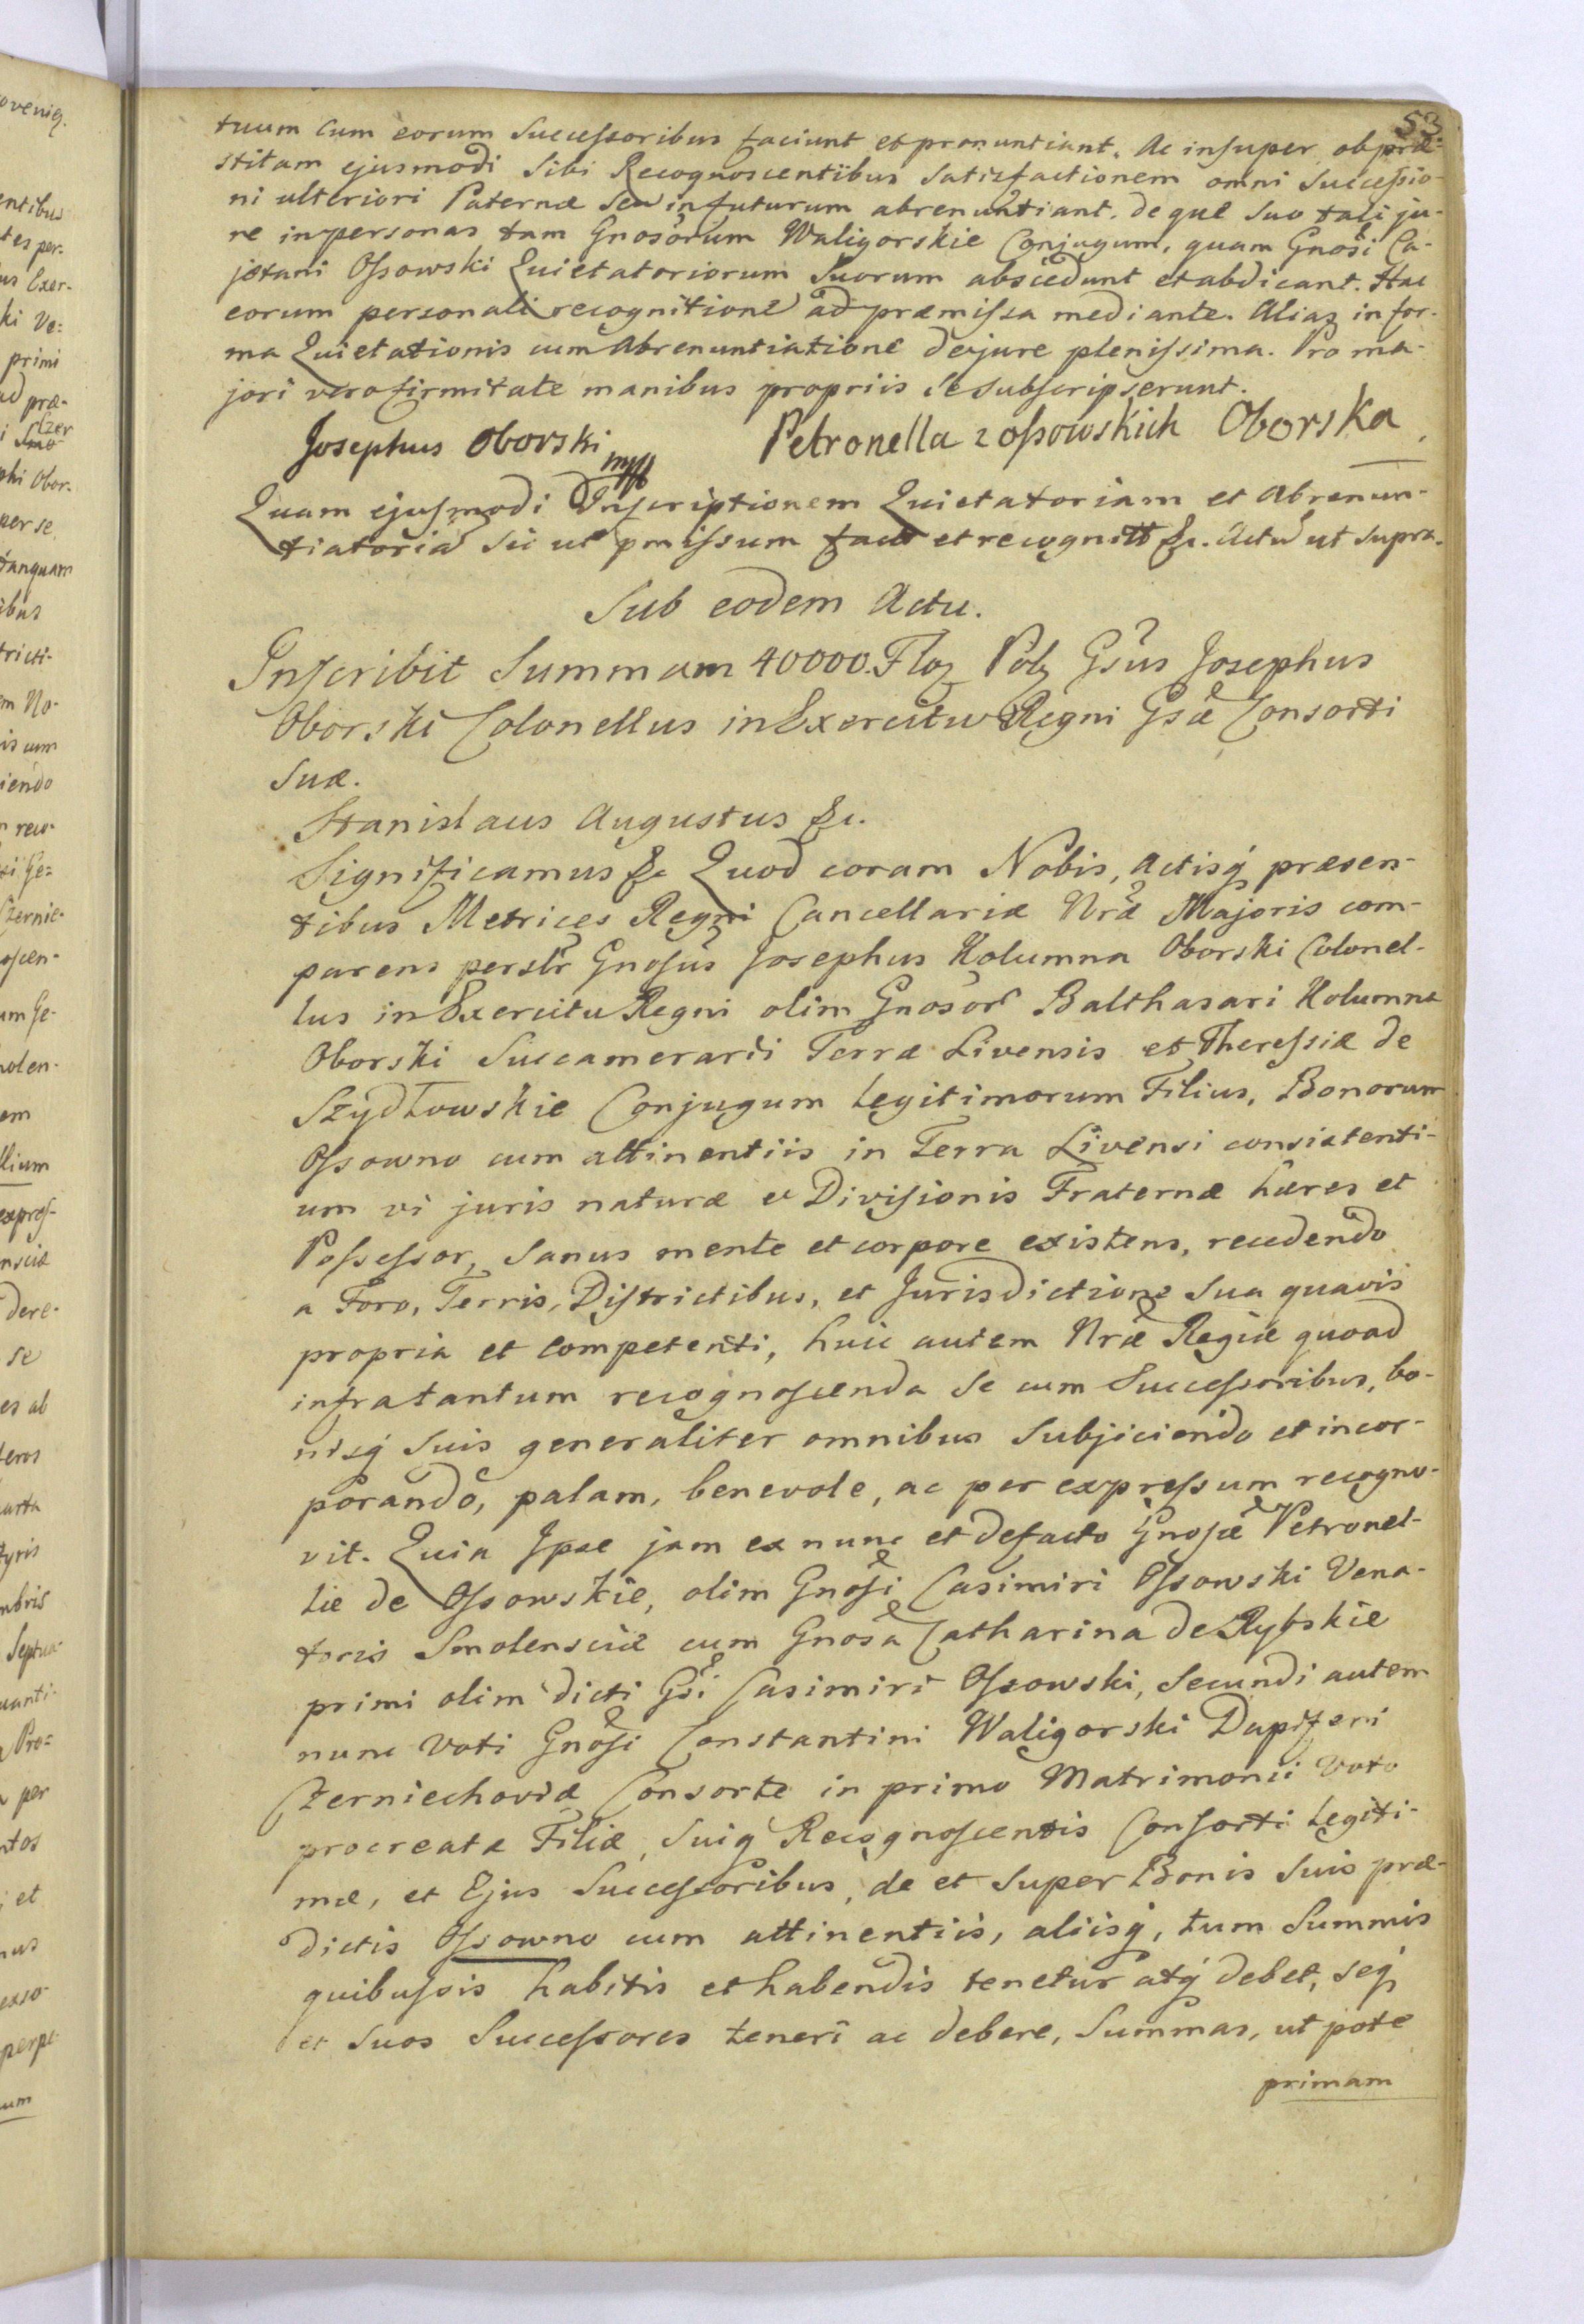 53.
tuum cum eorum Successoribus faciunt et pronuntiant. Ac insuper ob præ-
stitam ejusmodi Sibi Recognoscentibus Satisfactionem omni Successio-
ni ulteriori Paternæ seu in futurum abrenuntiant, de que suo tali ju-
re in personas tam Gnosorum Waligorskie Conjugum, quam Gnosi Ca-
jetani Ossowski Quietatoriorum Suorum abscedunt et abdicant. Hac
eorum personali recognitione ad præmissa mediante. Alias in for-
ma Quietationis cum Abrenuntiatione de jure plenissima. Pro ma-
jori vero firmitate manibus propriis se subscripserunt.
Josephus Oborski mpp Petronella z Ossowskich Oborska
Quam ejusmodi Inscriptionem Quietatoriam et Abrenun-
tiatoria sic ut pmissum fact et recognitt &c. Actu ut Supra.
Sub eodem Actu.
Inscribit Summam 40000. Floz Polz Gsus Josephus
Oborski Colonellus in Exercitu Regni Gsæ Consorti
suæ.
Stanislaus Augustus &c.
Significamus &c Quod coram Nobis, Actisq præsen-
tibus Metrices Regni Cancellariæ Nræ Majoris com-
parens perslr Gnosus Josephus Kolumna Oborski Colonel-
lus in Exercitu Regni olim Gnosor Balthasari Kolumna
Oborski Succamerarii Terræ Livensis et Theressiæ de
Szydłowskie Conjugum Legitimorum Filius, Bonorum
Ossowno cum attinentiis in Terra Livensi consistenti-
um vi juris naturæ et Divisionis Fraternæ hæres et
Possessor, Sanus mente et corpore existens, recedendo
a Foro, Terris, Districtibus, et Jurisdictione sua quavis
propria et competenti, huic autem Nræ Regiæ quoad
infra tantum recognoscenda se cum Successoribus, bo-
nisq suis generaliter omnibus subjiciendo et incor-
porando, palam, benevole, ac per expressum recogno-
vit. Quia Ipse jam ex nunc et de facto Gnosæ Petronel-
læ de Ossowskie, olim Gnosi Casimiri Ossowski Vena-
toris Smolensciæ cum Gnosa Catharina de Rybskie
primi olim dicti Gsi Casimiri Ossowski, Secundi autem
nunc Voti Gnosi Constantini Waligorski Dapiferi
Czerniechoviæ Consorte in primo Matrimonii Voto
procreatæ Filiæ, Suiq Recognoscentis Consorti Legiti-
mæ, et Ejus Successoribus, de et super Bonis suis præ-
dictis Ossowno cum attinentiis, aliisq, tum Summis
quibusvis habitis et habendis tenetur atq debet, seq
et suos Successores teneri ac debere, Summas, ut pote
primam